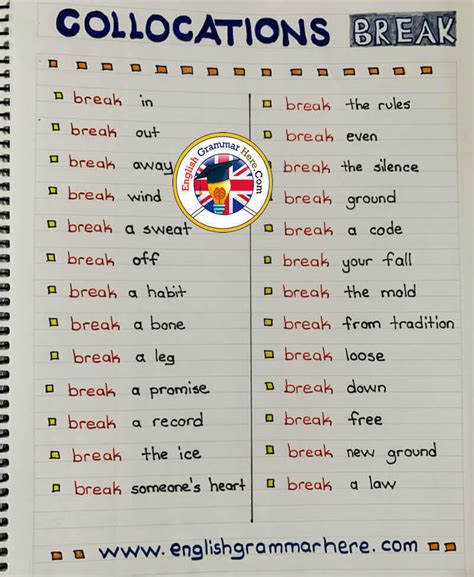 COLLOCATIONS BREAK
break in
break out
break away
break wind
break a sweat
break off
break a habit
break a bone
break a leg
break a promise
break a record
break the ice
break someone's heart
break the rules
break even
break the silence
break ground
break a code
break your fall
break the mold
break from tradition
break loose
break down
break free
break new ground
break a law
English Grammar Here.Com
www.englishgrammarhere.com